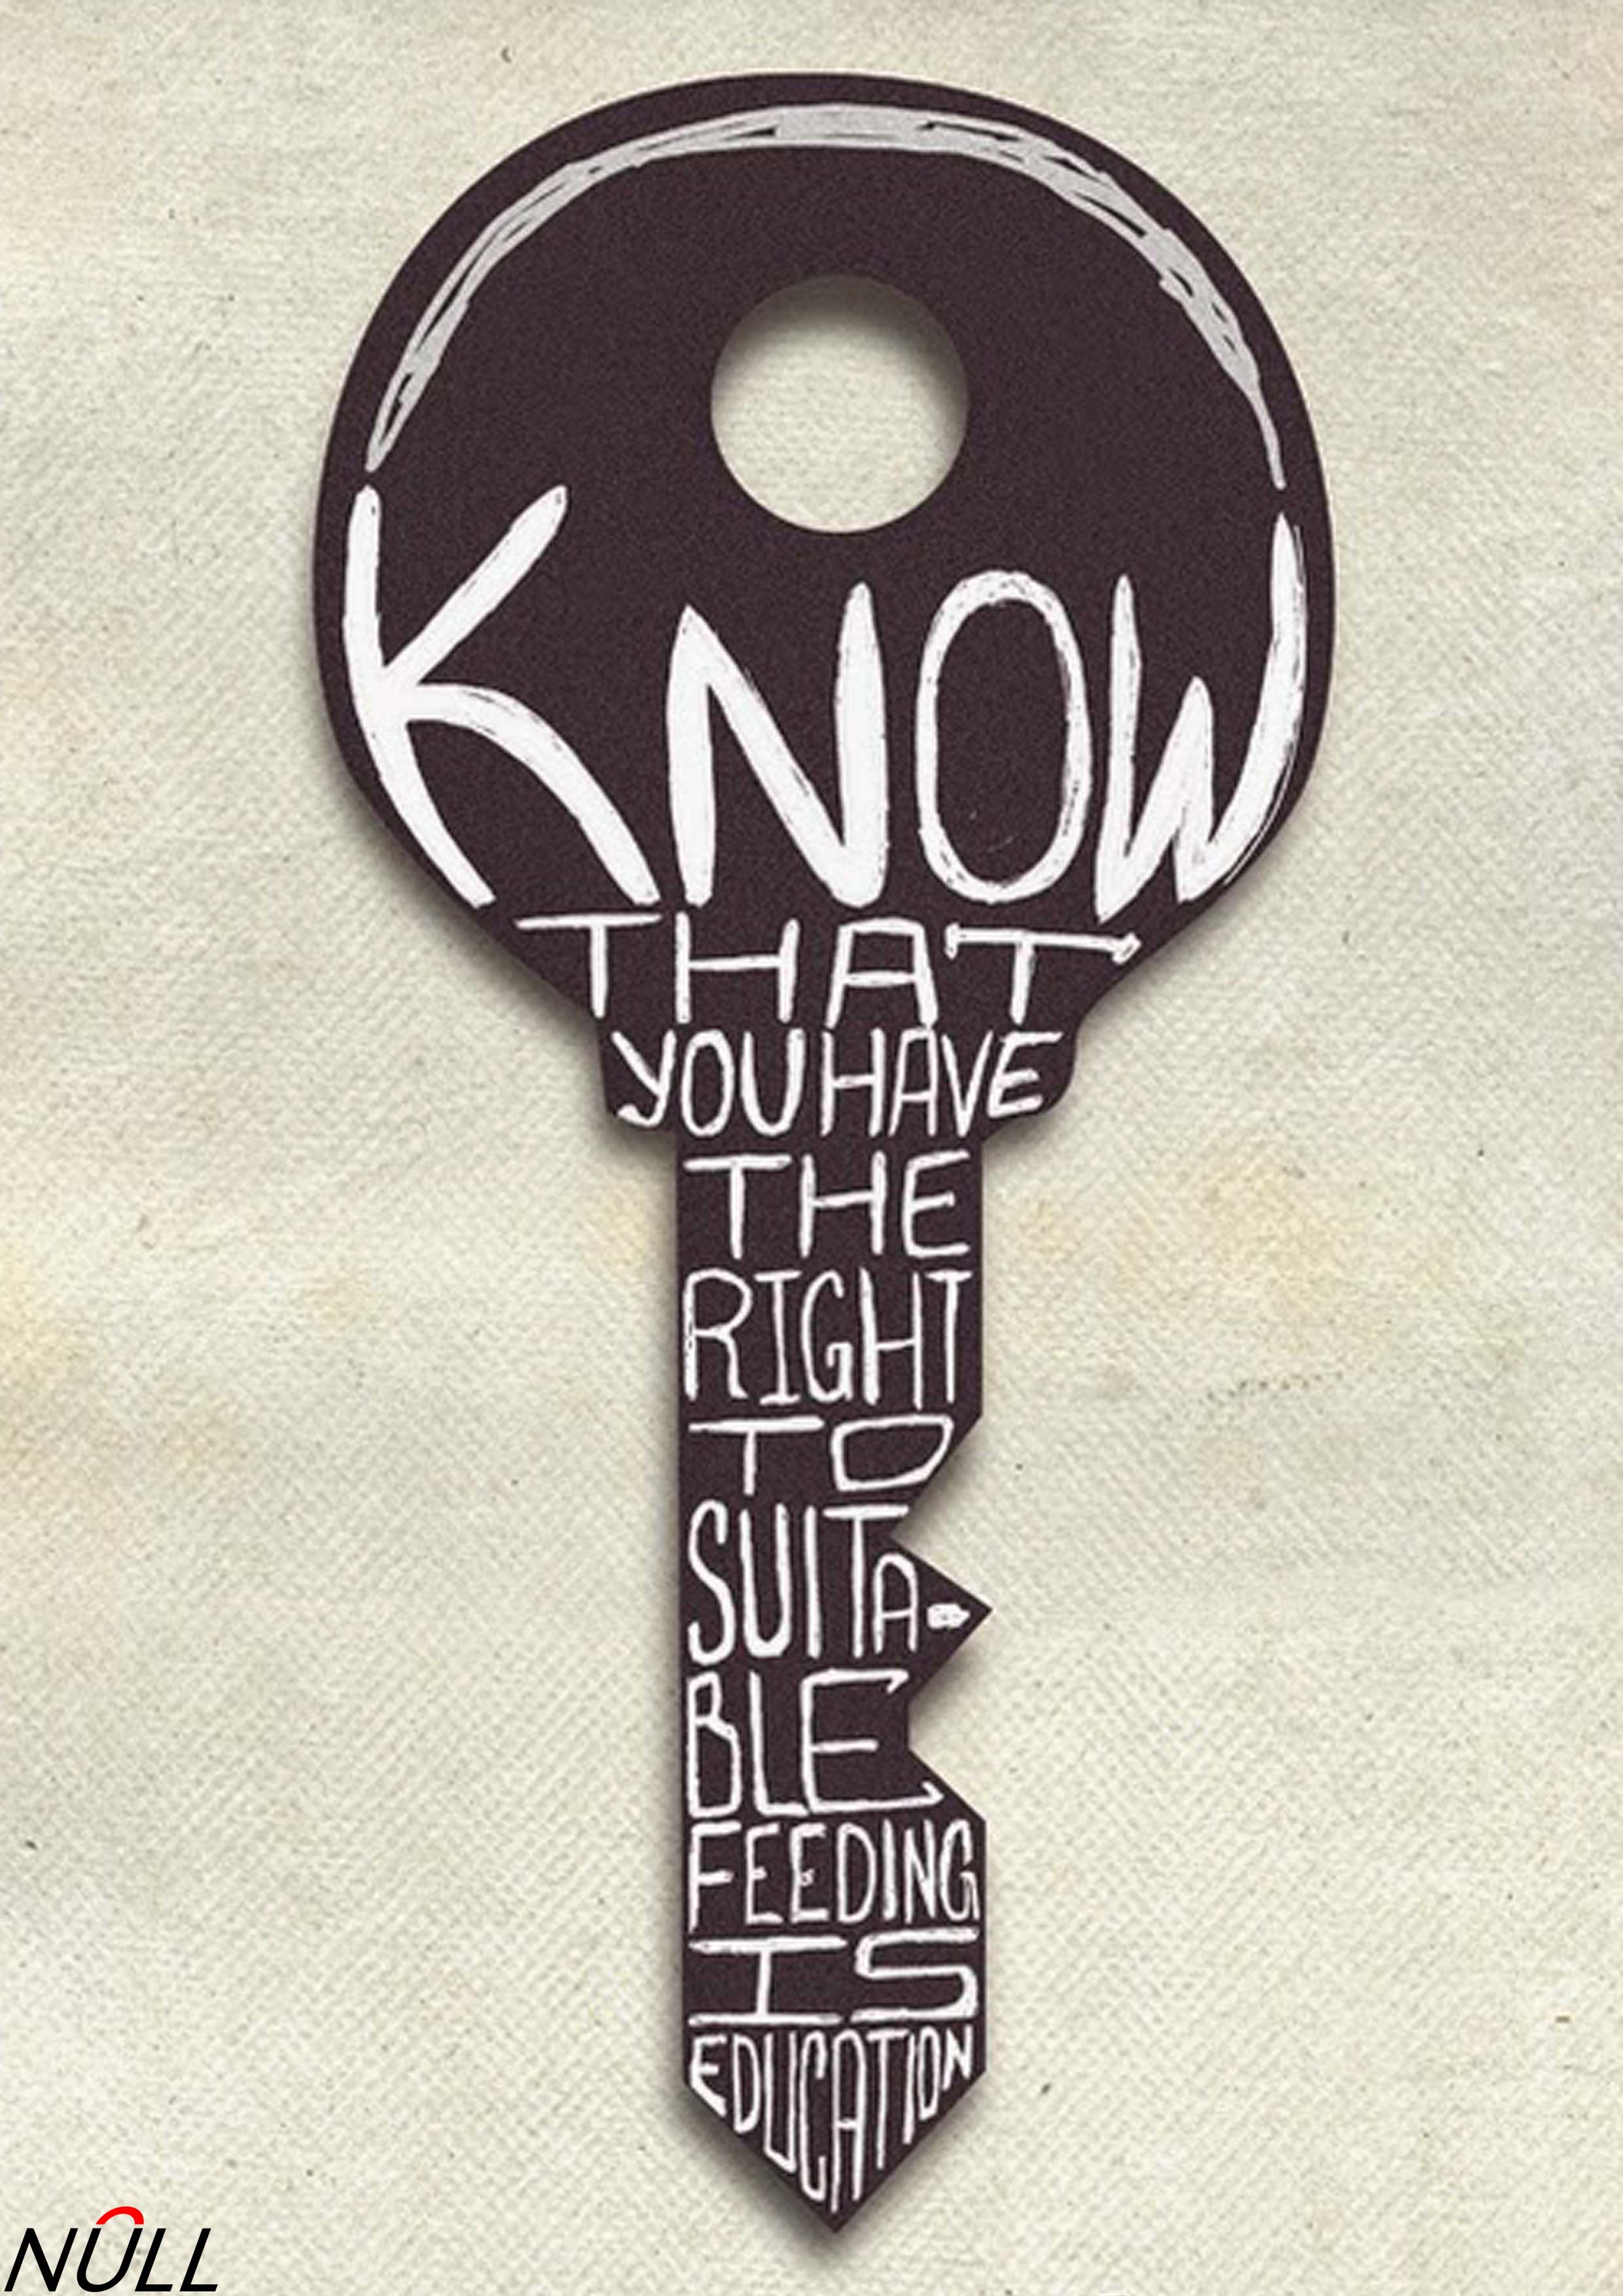 KNOW
THAT
YOU HAVE
THE
RIGHT
TO
SUITA-
BLE
FEEDING
IS
EDUCATION
NULL